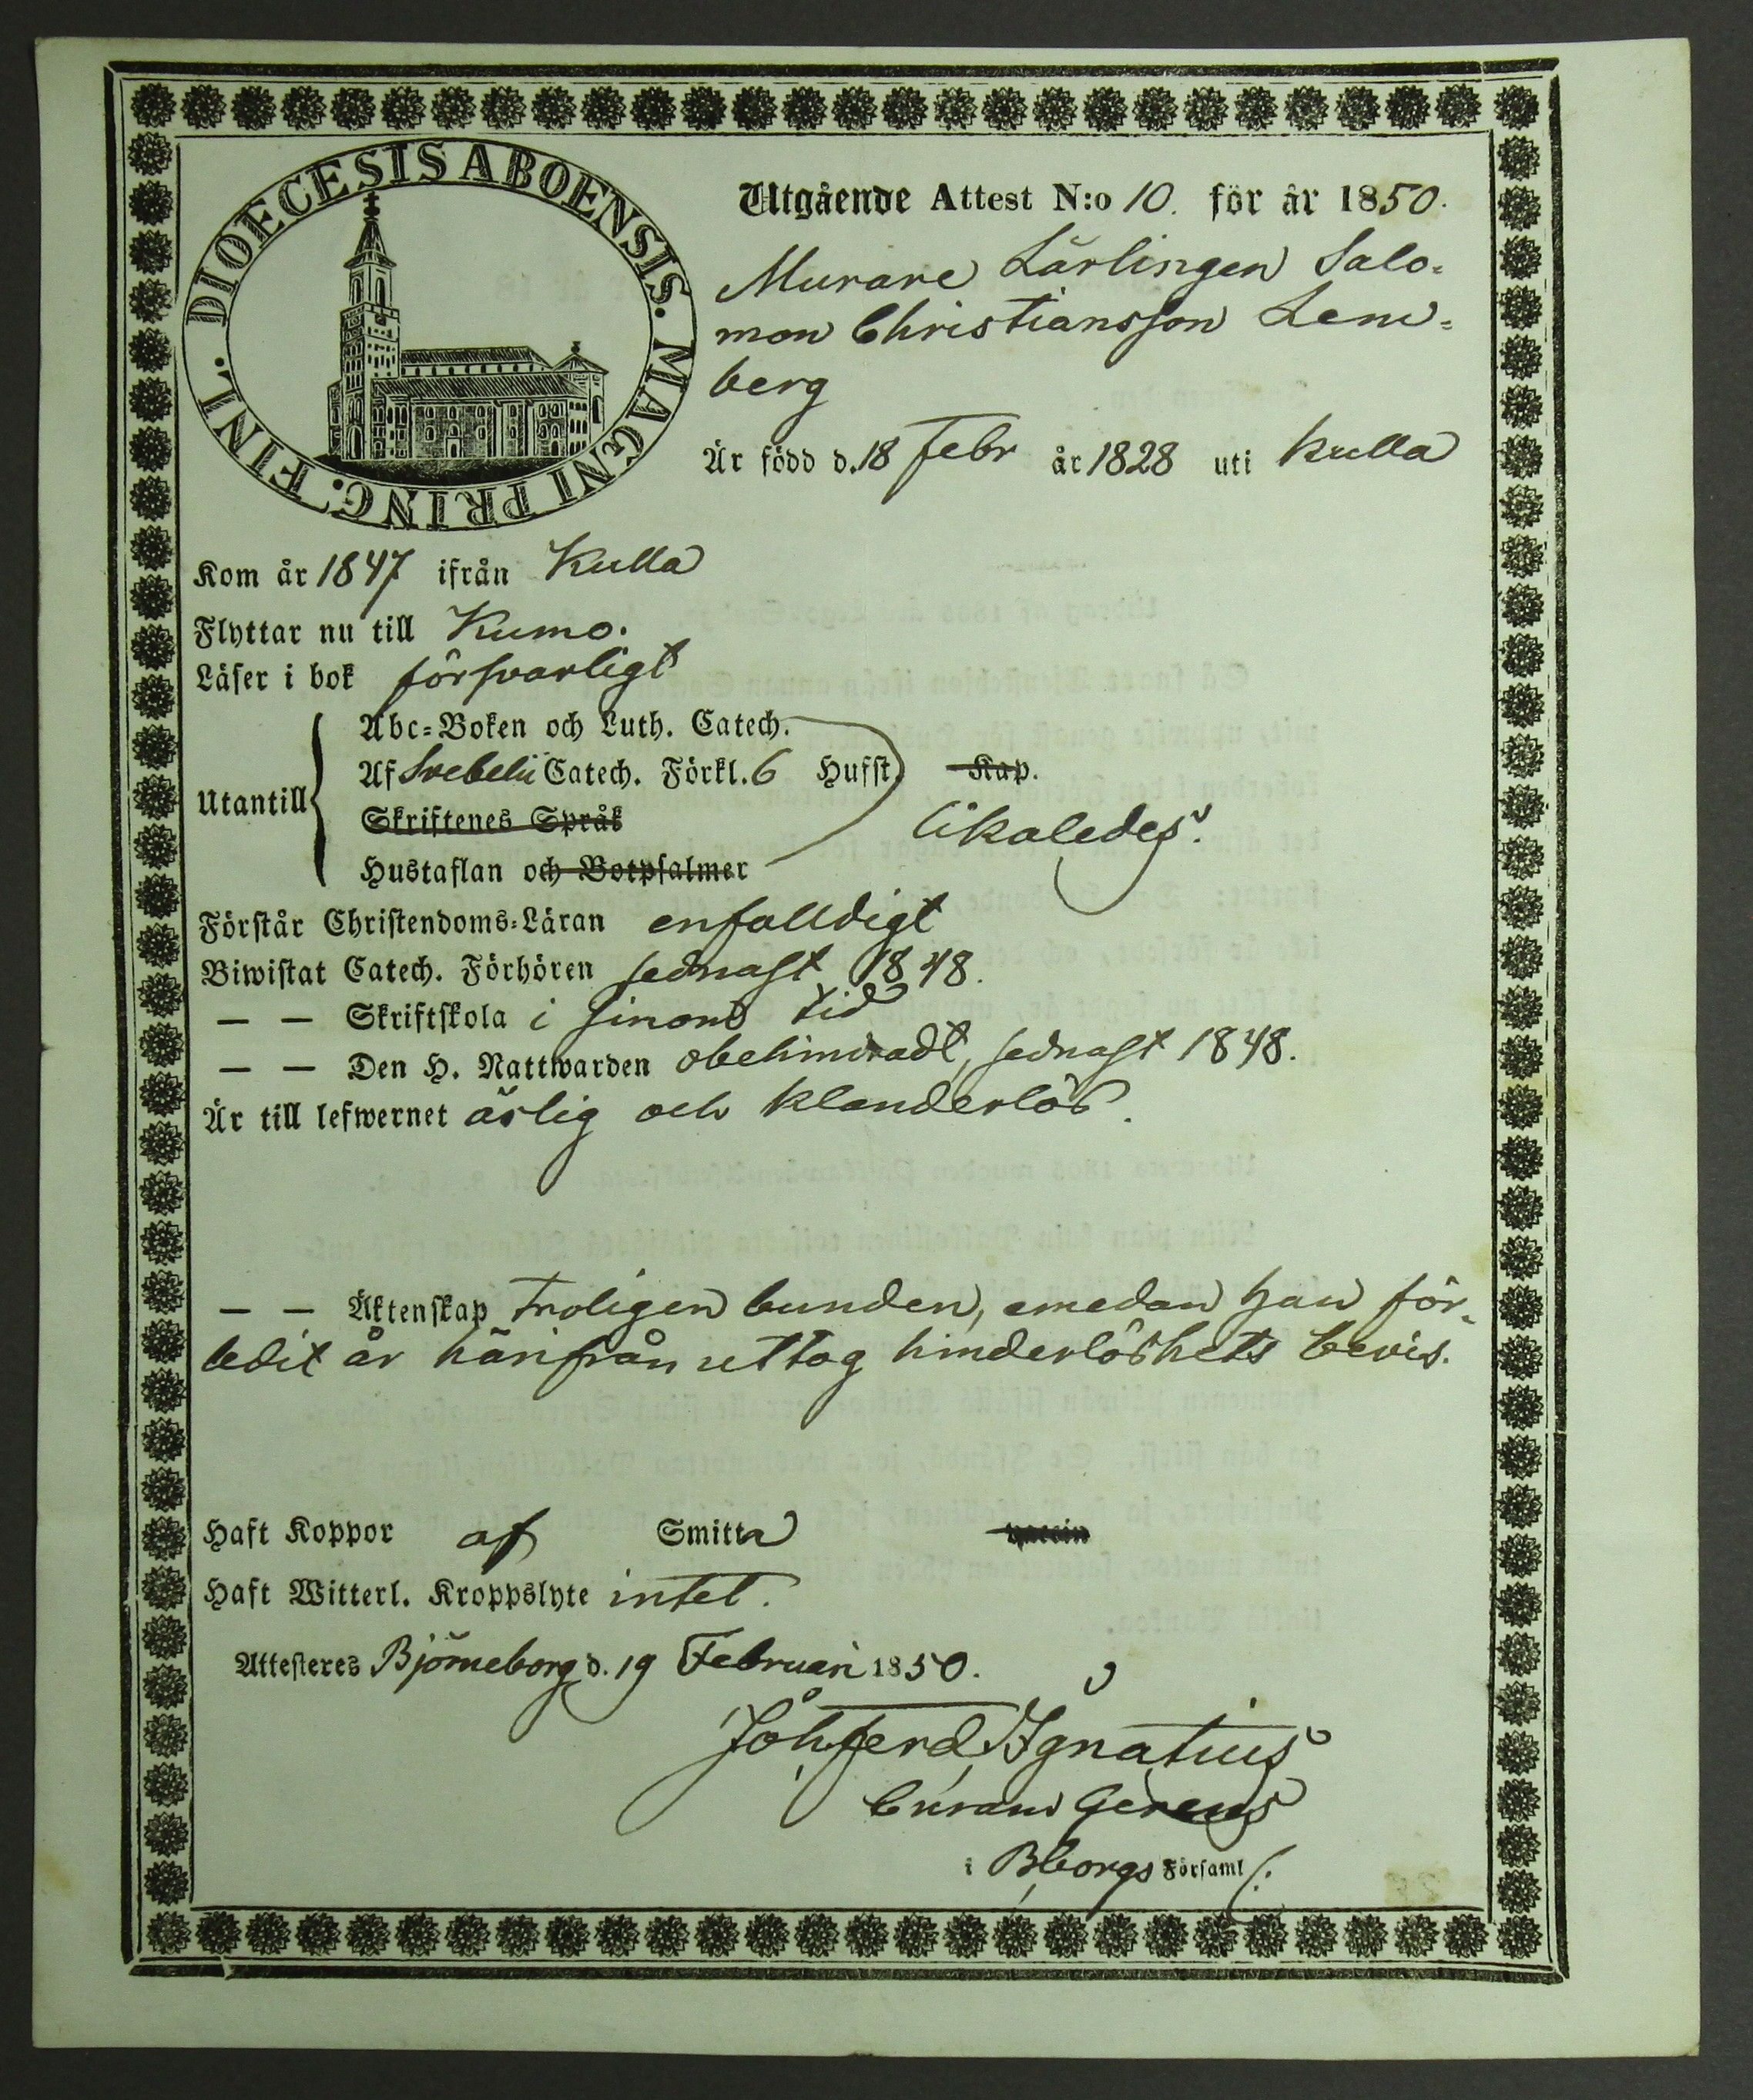 DIOECESIS ABOENSIS. MAGNI PRINC. FINL.
Utgående Attest N:o 10. för år 1850.
Murare Lärlingen Salo=
mon Christiansson Lem=
berg
Är född d. 18 Febr år 1828 uti Kulla
Kom år 1847 ifrån Kulla
Flyttar nu till Kumo.
Läser i bok försvarligt
Utantill
Abc=Boken och Luth. Catech.
Af Svebelii Catech. Förkl. 6 Hufst. Kap.
Skriftenes Språk
likaledes.
Hustaflan och Botpsalmer
Förstår Christendoms=Läran enfalldigt
Biwistat Catech. Förhören sednast 1848.
— — Skriftskola i sinom tid
— — Den H. Nattwarden obehindradt, sednast 1848.
Är till lefwernet ärlig och klanderlös.
— — Äktenskap troligen bunden, emedan han för=
ledit år härifrån uttog hinderlöshets bevis.
Haft Koppor af Smitta vaccin
Haft Witterl. Kroppslyte intet.
Attesteres Björneborg d. 19 Februari 1850.
Joh. Ferd. Ignatius
Curam Gerens
i Bborgs Församl.